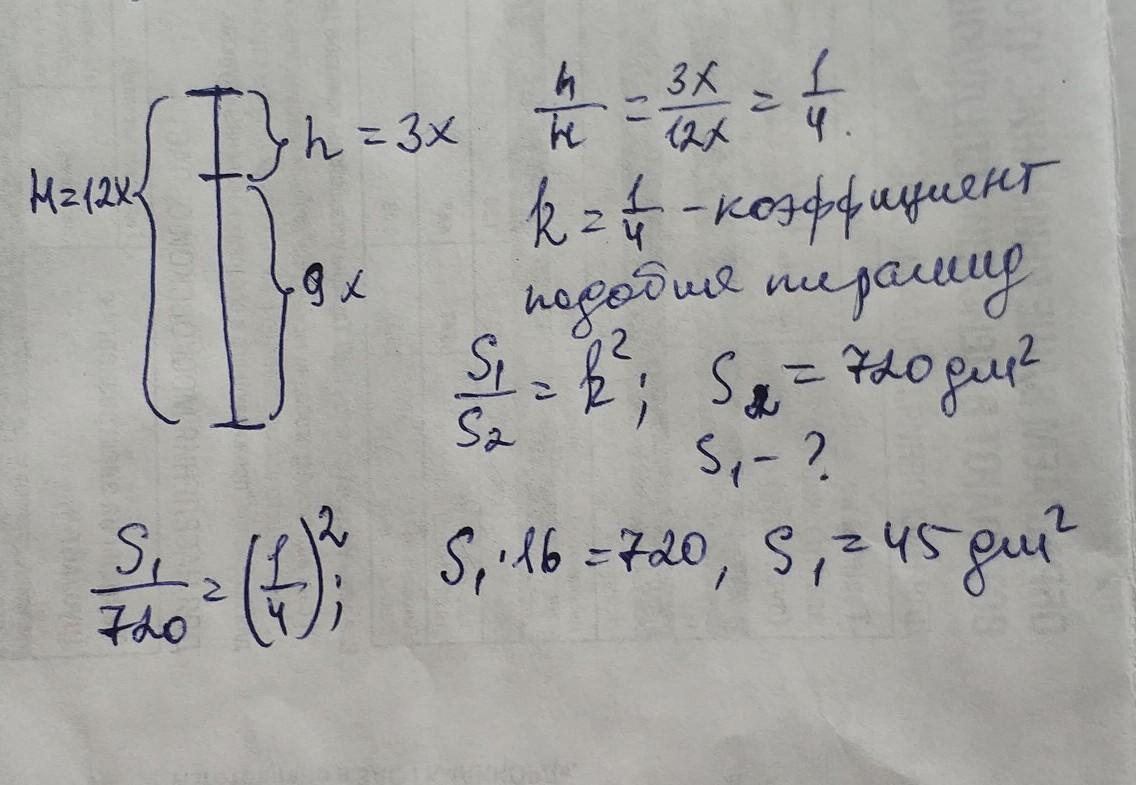 H=12x
h = 3x
9x
h/H = 3x/12x = 1/4.
k = 1/4 - коэффициент
подобия пирамид
S₁/S₂ = k²; S₂ = 720 дм²
S₁ - ?
S₁/720 = (1/4)²; S₁·16 = 720, S₁ = 45 дм²